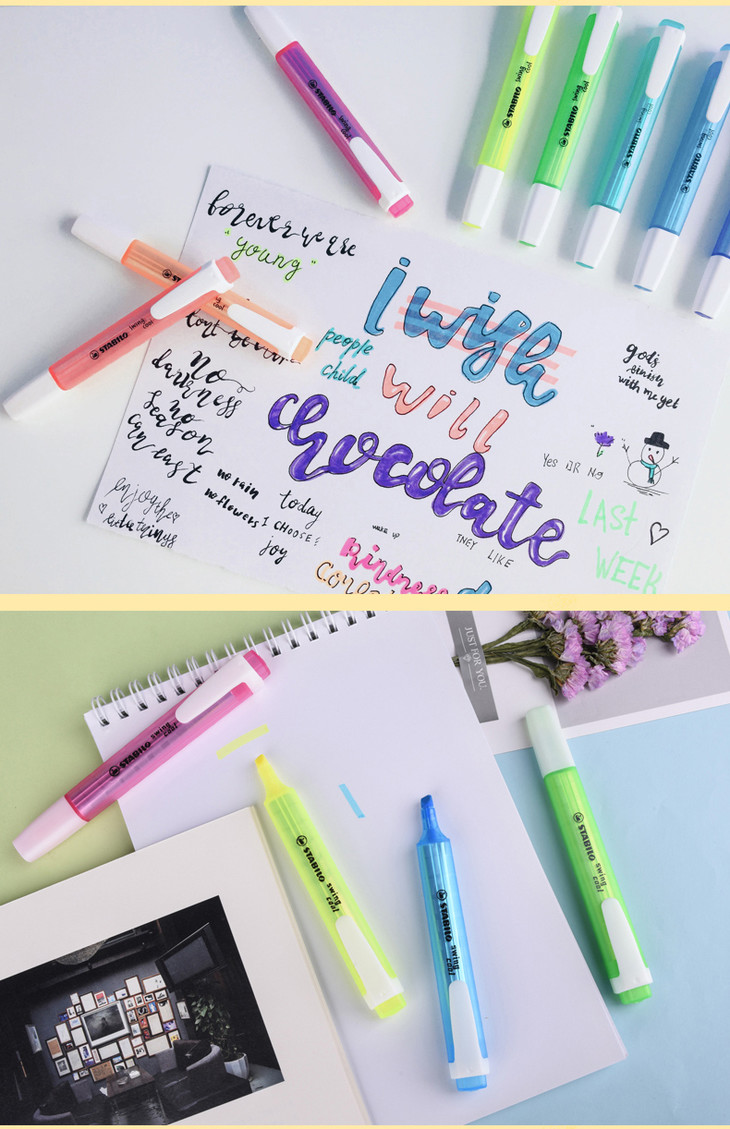 STABILO swing cool
STABILO swing cool
STABILO swing cool
STABILO swing cool
STABILO swing cool
forever we are
"young"
STABILO swing cool
cool
i wish
people
child
will
chocolate
god's
finish
with me yet
no
darkness
no
season
can east
Yes OR No
enjoy the
little things
no rain
no flowers
today
I CHOOSE
joy
wake up
THEY LIKE
LAST
WEEK
kindness
JUST FOR YOU.
STABILO swing cool
STABILO swing cool
STABILO swing cool
STABILO swing cool